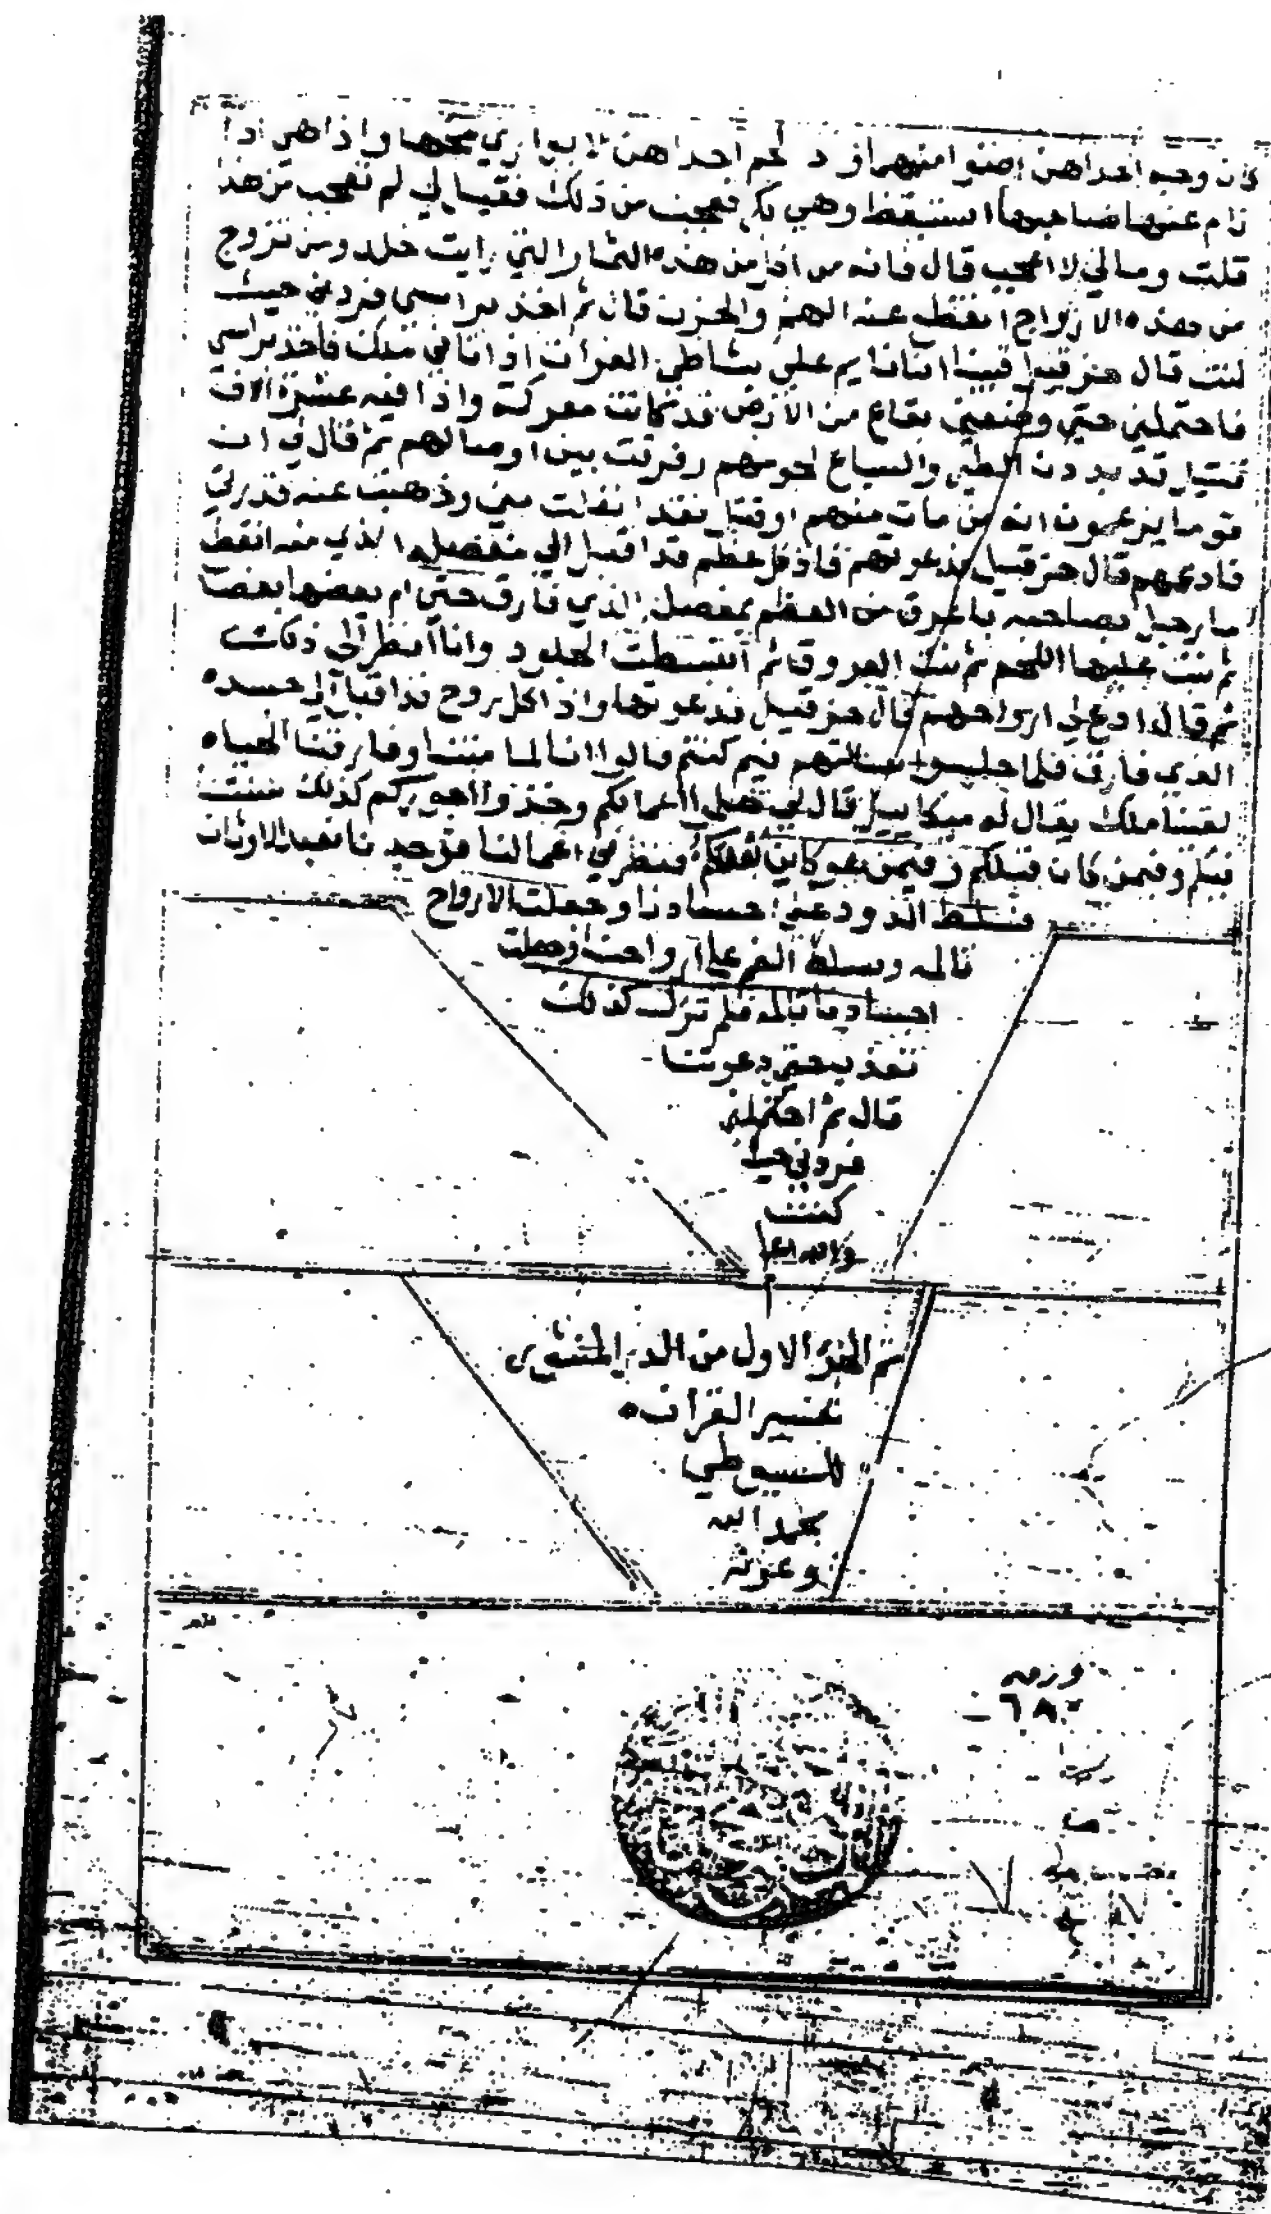 كان وجه احداهن اضوا منهما ولحم احداهن لا يواري مخها واذا هي اذا
نام عنها صاحبها استيقظ وهي بكر فعجبت من ذلك فقيل لي لم تعجب من هذا
قلت ومالي لا اعجب قال فانه من اكل من هذه الثمار التي رايت خلد ومن تزوج
من هذه الازواج انقطع عنه الهم والحزن قال ثم اخذ براسي فردني حيث
كنت قال حزقيل فبينا انا نايم على شاطئ الفرات اذ اتاني ملك فاخذ براسي
فاحتملني حتى وضعني بقاع من الارض قد كانت معركة واذا فيه عشرة الاف
قتيل قد بددت الطير والسباع لحومهم وفرقت بين اوصالهم ثم قال لي ان
قوما يزعمون انه من مات منهم او قتل فقد انفلت مني وذهبت عنه قدرتي
فادعهم قال حزقيل فدعوتهم فاذا كل عظم قد اقبل الى مفصله الذي منه انقطع
ما رجل بصاحبه باعرف من العظم بمفصله الذي فارق حتى ام بعضها بعضا
ثم نبت عليها اللحم ثم نبت العروق ثم انبسطت الجلود وانا انظر الى ذلك
ثم قال ادع لي ارواحهم قال حزقيل فدعوتها واذا كل روح قد اقبل الى جسده
الذي فارق فلما جلسوا سالتهم فيم كنتم قالوا انا لما متنا وفارقنا الحياه
لقينا ملك يقال له ميكاييل قال لي هلموا اعمالكم وخذوا اجوركم كذلك سنتنا
فيكم وفيمن كان قبلكم وفيمن هو كاين بعدكم فنظر في اعمالنا فوجدنا نعبد الاوثان
فسلط الدود على اجسادنا وجعلت الارواح
تالمه وسلط الغم على ارواحنا وجعلت
اجسادنا تالمه فلم نزل كذلك
نعذب حتى دعوتنا
قال ثم احتملني
فردني حيث
كنت
والله اعلم
تم الجزء الاول من الدر المنثور في
تفسير القرآن
للسيوطي
بحمد الله
وعونه
ورقه
٦٨٠